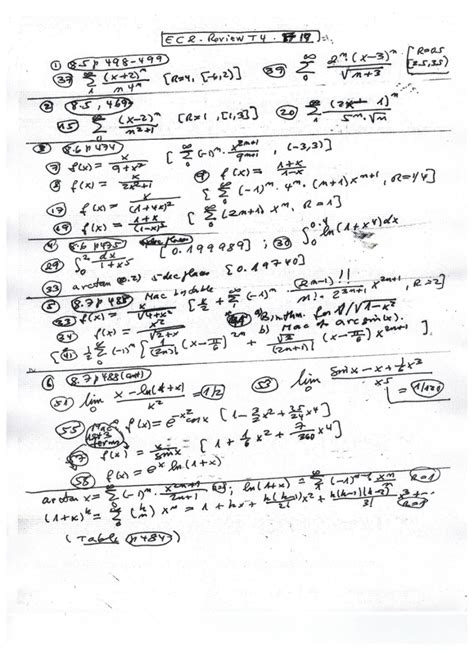 ECR. Review T4.
① 8.5 p 498-499
33 ∞∑1 (x+2)^n / n4^n [R=4, [-6,2)]
39 ∞∑0 2^n (x-3)^n / √(n+3) [R=0.5 [2.5,3.5)
② 8.5, 469
15 ∞∑0 (x-2)^n / n²+1 [R=1, [1,3]]
20 ∞∑ (2x-1)^n / 5^n·√n
8.6 p 474
7 f(x) = x / 9+x² [∞∑0 (-1)^n · x^2n+1 / 9^n+1, (-3,3)]
8 f(x) = x / 2x²+1
9 f(x) = 1+x / 1-x
17 f(x) = x / (1+4x)² [∞∑0 (-1)^n · 4^n · (n+1) x^n+1, R=1/4]
19 f(x) = 1+x / (1-x)² [∞∑0 (2n+1) x^n, R=1]
④ 8.6 p 475
29 ∫0^0.2 dx / 1+x^5 [0.199989];
30 ∫0^0.4 ln(1+x^4) dx
33 arctan (0.2) 5-dec places [0.19740]
⑤ 8.7 p 488
33 f(x) = x / √4+x² [x/2 + ∞∑1 (-1)^n · (2n-1)!! / n! · 2^3n+1 x^2n+1, R=2]
34 f(x) = x² / √2+x
a) Binthm. for 1/√1-x²
b) Mac for arcsin(x).
⑥ 8.7 p 488 (cont)
51 lim0 x - ln(1+x) / x² = 1/2
53 lim0 sin x - x + 1/6 x³ / x^5 = 1/120
55 Mac 1st 3 terms f(x) = e^-x² cos x [1 - 3/2 x² + 25/24 x^4]
57 f(x) = x / sin x [1 + 1/6 x² + 7/360 x^4]
58 f(x) = e^x ln(1+x)
arctan x = ∞∑0 (-1)^n · x^2n+1 / 2n+1
ln(1+x) = ∞∑1 (-1)^n-1 x^n / n R=1
(1+x)^k = ∞∑0 (k n) x^n = 1 + kx + k(k-1)/2! x² + k(k-1)(k-2)/3! x³ + … R=1
(Table p 484)